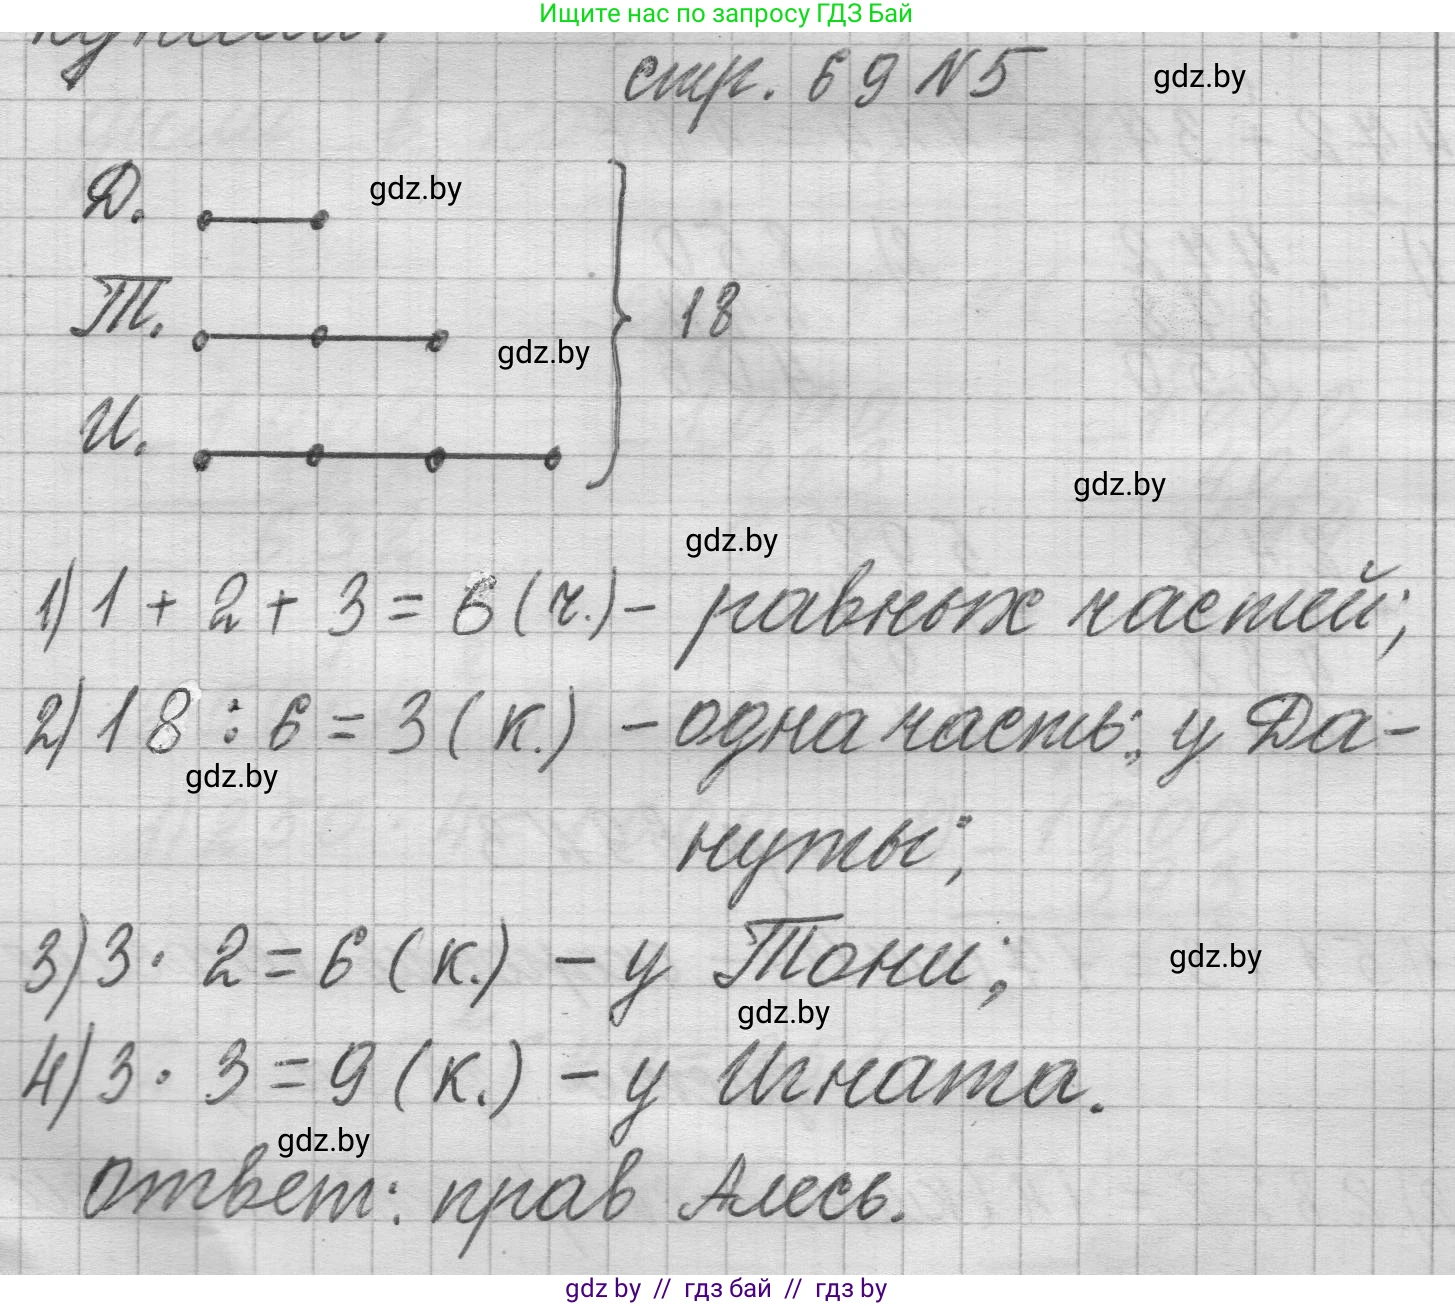 Ищите нас по запросу ГДЗ Бай
стр. 69 N5
gdz.by
Д.
gdz.by
Т.
18
gdz.by
И.
gdz.by
gdz.by
1) 1 + 2 + 3 = 6 (ч.) - равных частей;
2) 18 : 6 = 3 (к.) - одна часть; у Да-
gdz.by
нуты;
3) 3 · 2 = 6 (к.) - у Тони;
gdz.by
gdz.by
4) 3 · 3 = 9 (к.) - у Игната.
gdz.by
ответ: прав Алесь.
gdz by // гдз бай // гдз by